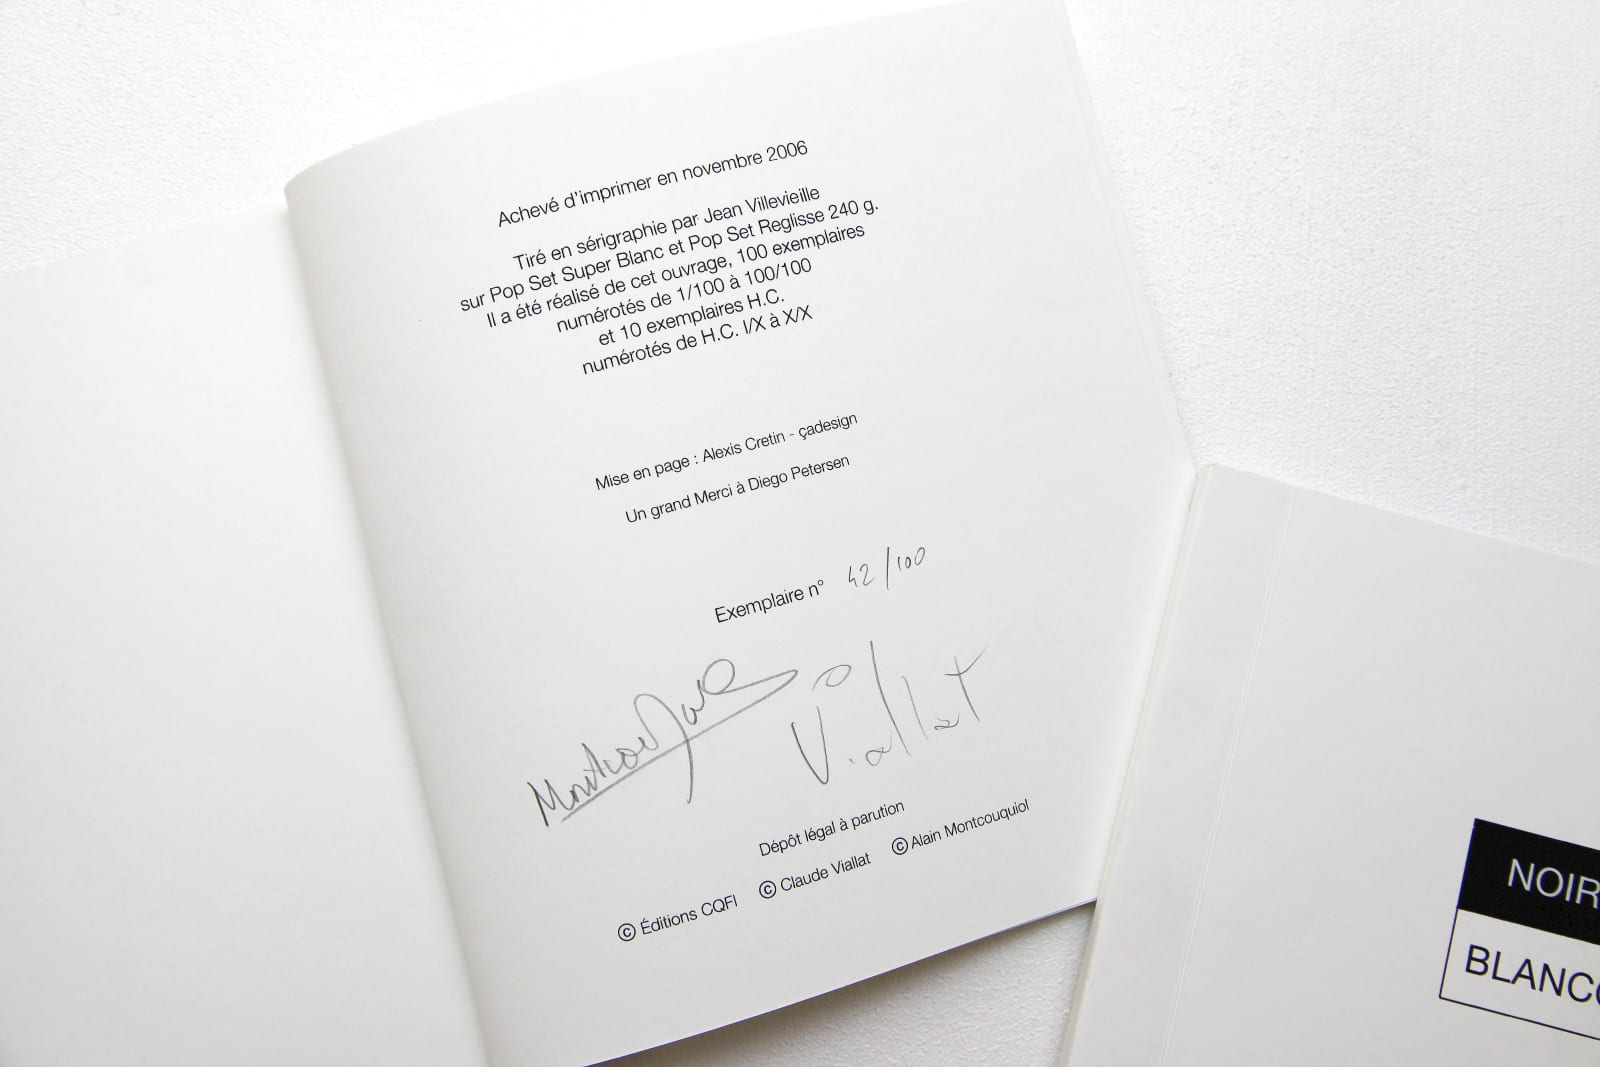 Achevé d'imprimer en novembre 2006
Tiré en sérigraphie par Jean Villevieille
sur Pop Set Super Blanc et Pop Set Reglisse 240 g.
Il a été réalisé de cet ouvrage, 100 exemplaires
numérotés de 1/100 à 100/100
et 10 exemplaires H.C.
numérotés de H.C. I/X à X/X
Mise en page : Alexis Cretin - çadesign
Un grand Merci à Diego Petersen
Exemplaire n° 42/100
Viallat
Dépôt légal à parution
© Éditions CQFI © Claude Viallat © Alain Montcouquiol
NOIR
BLANC